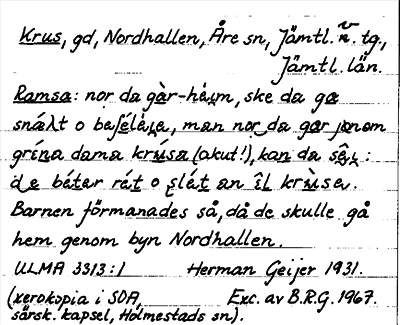 Krus, gd, Nordhallen, Åre sn, Jämtl. n. tg.,
Jämtl. län.
Ramsa: nọr da gàr-hẹ́ım, ske da ga
snáʎt o beſéléıɹa, man nọr da gar jɒnom
grína dama krúsa (akut!), kan da sệı :
de bétər rét o slét an îl krùser.
Barnen förmanades så, då de skulle gå
hem genom byn Nordhallen.
ULMA 3313:1 Herman Geijer 1931.
(xerokopia i SOA, Exc. av B.R.G. 1967.
särsk. kapsel, Holmestads sn).